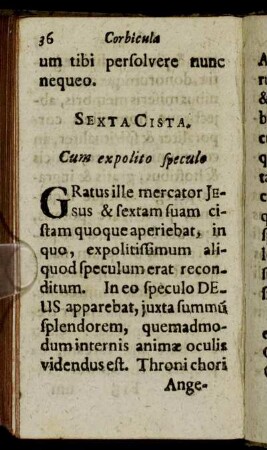 36 Corbicula
um tibi persolvere nunc
nequeo.
SEXTA CISTA.
Cum expolito speculo
GRatus ille mercator JE-
sus & sextam suam ci-
stam quoque aperiebat, in
quo, expolitissimum ali-
quod speculum erat recon-
ditum. In eo speculo DE-
US apparebat, juxta summũ
splendorem, quemadmo-
dum internis animæ oculis
videndus est. Throni chori
Ange-